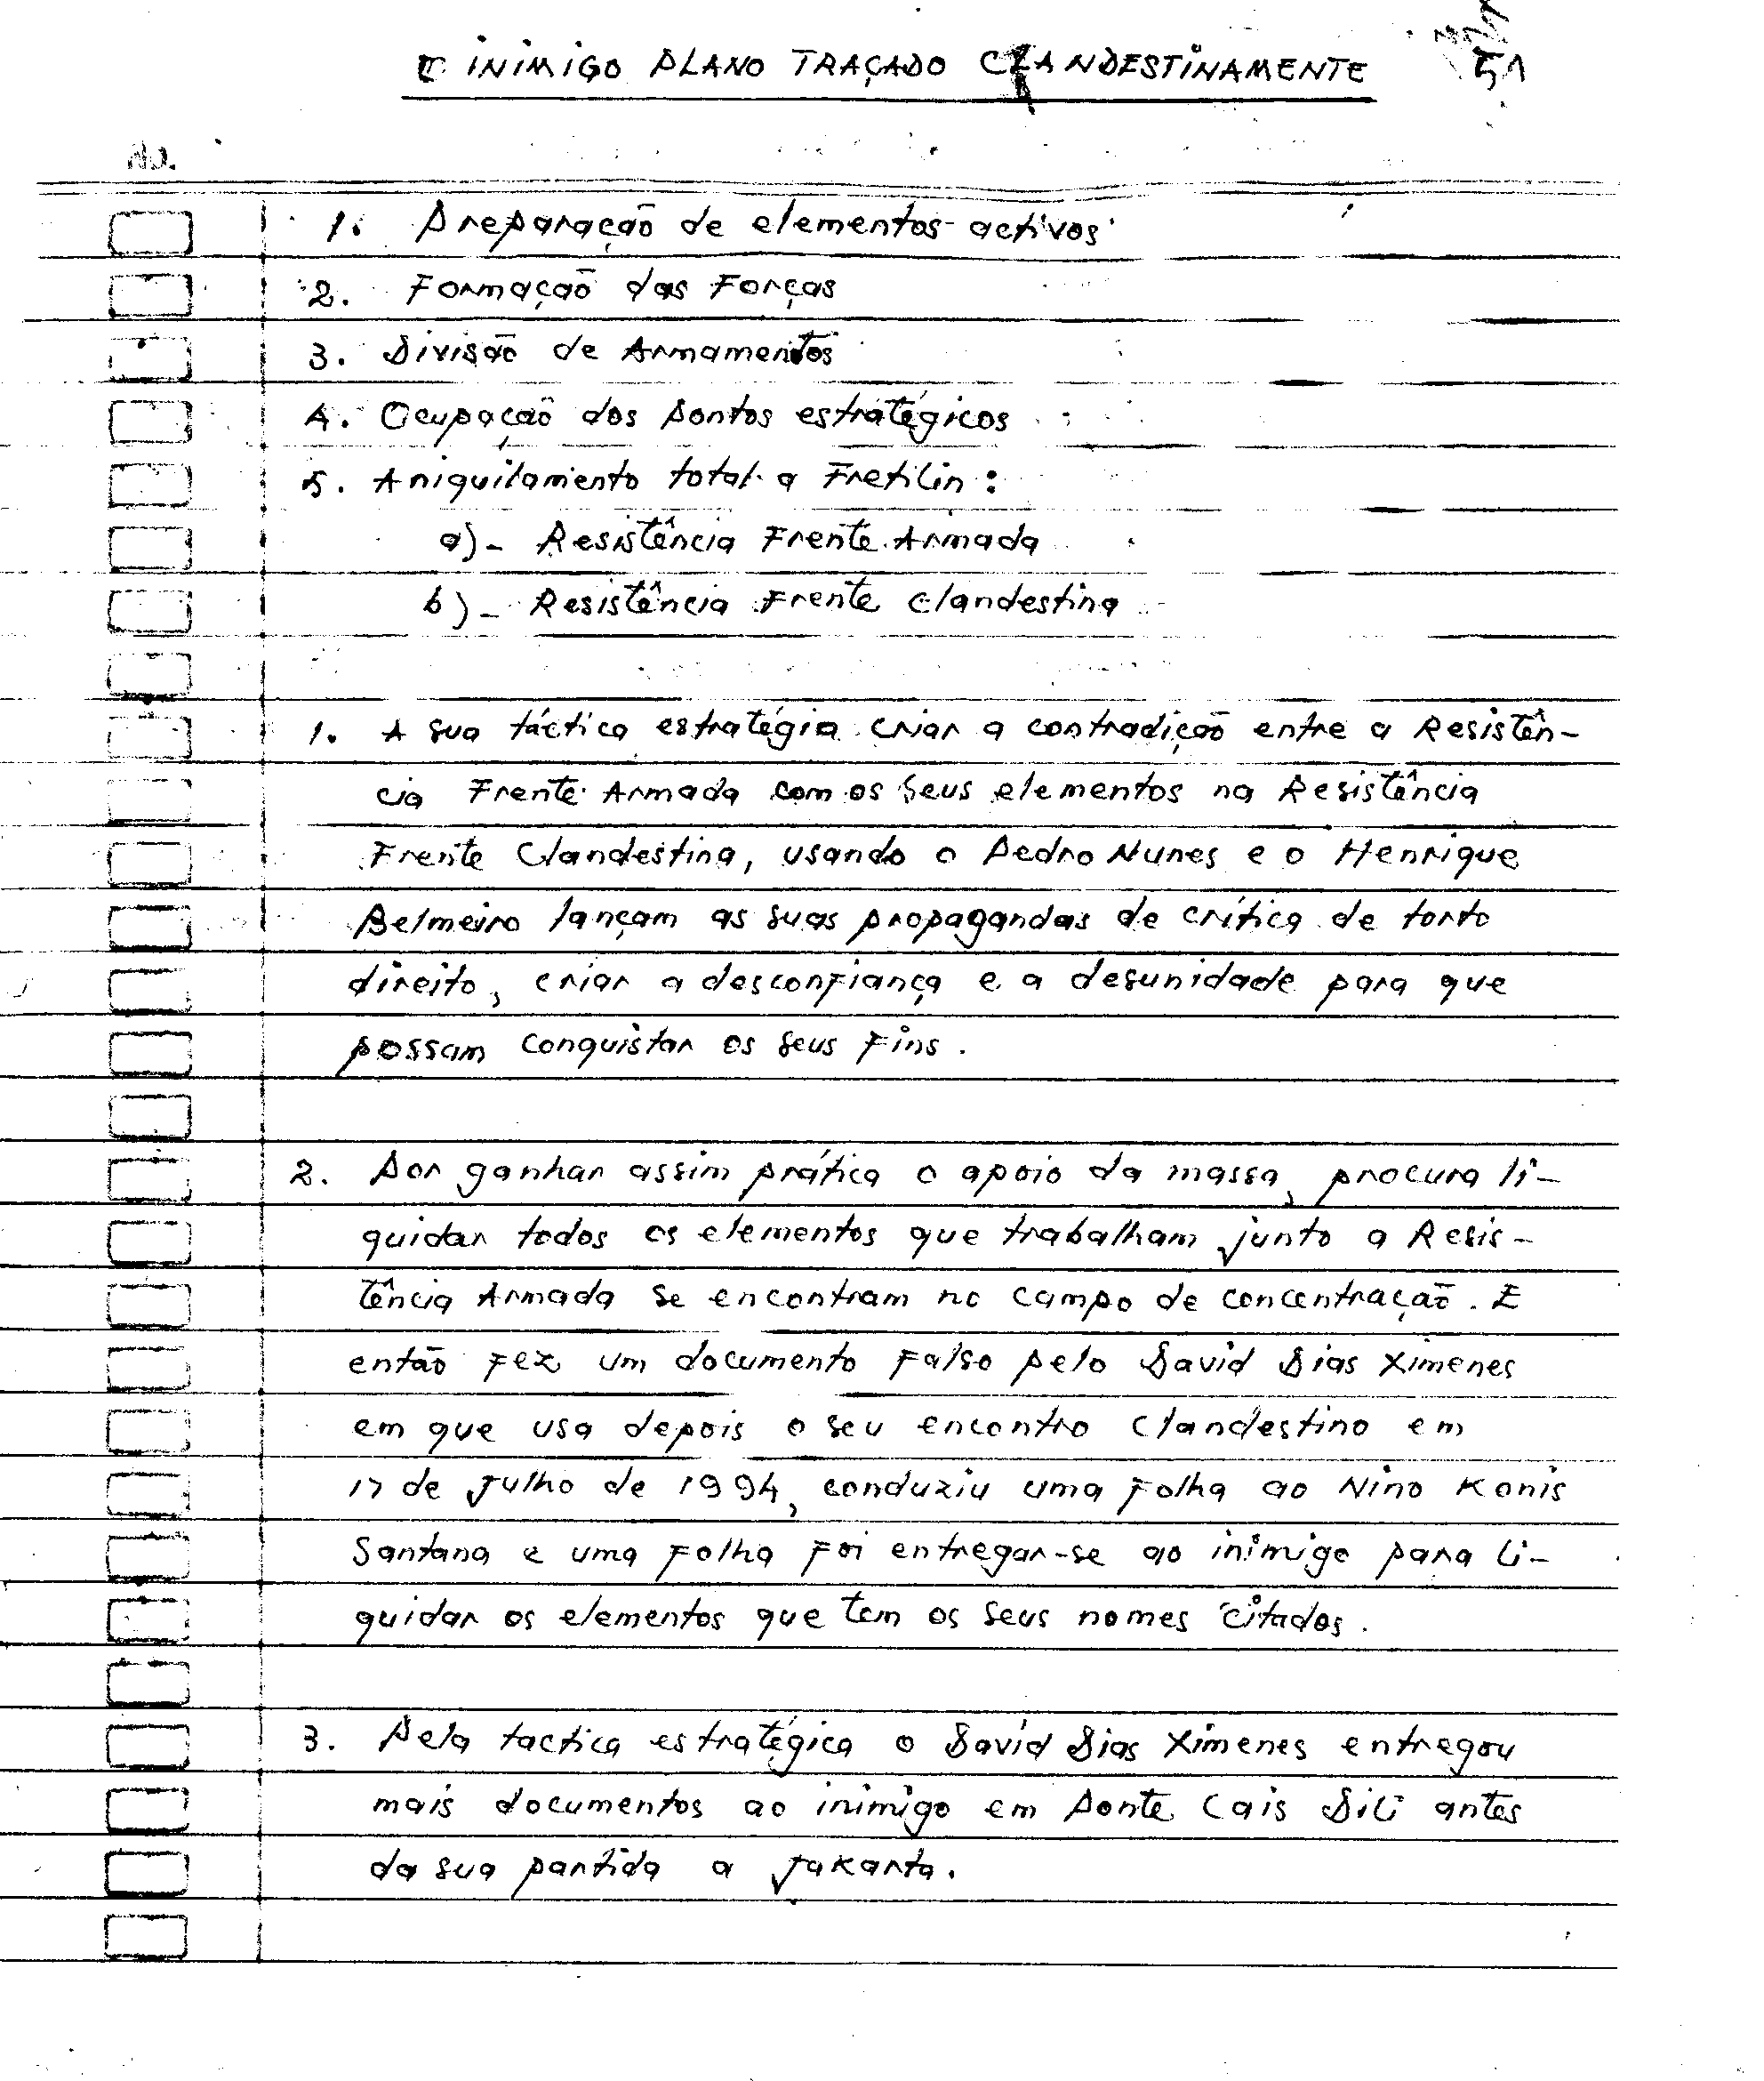 O INIMIGO PLANO TRAÇADO CLANDESTINAMENTE
51
1. Preparação de elementos activos
2. Formação das Forças
3. Divisão de Armamentos
4. Ocupação dos pontos estratégicos
5. Aniquilamento total a Fretilin:
a)- Resistência Frente Armada
b)- Resistência Frente Clandestina
1. A sua táctica estratégia criar a contradição entre a Resistên-
cia Frente Armada com os seus elementos na Resistência
Frente Clandestina, usando o Pedro Nunes e o Henrique
Belmeiro lançam as suas propagandas de crítica de torto
direito, criar a desconfiança e a desunidade para que
possam conquistar os seus fins.
2. Por ganhar assim prática o apoio da massa, procura li-
quidar todos os elementos que trabalham junto a Resis-
tência Armada se encontram no campo de concentração. E
então fez um documento falso pelo David Dias Ximenes
em que usa depois o seu encontro clandestino em
17 de Julho de 1994, conduziu uma folha ao Nino Konis
Santana e uma folha foi entregar-se ao inimigo para li-
quidar os elementos que tem os seus nomes citados.
3. Pela tactica estratégica o David Dias Ximenes entregou
mais documentos ao inimigo em Ponte Cais Dili antes
da sua partida a Jakarta.